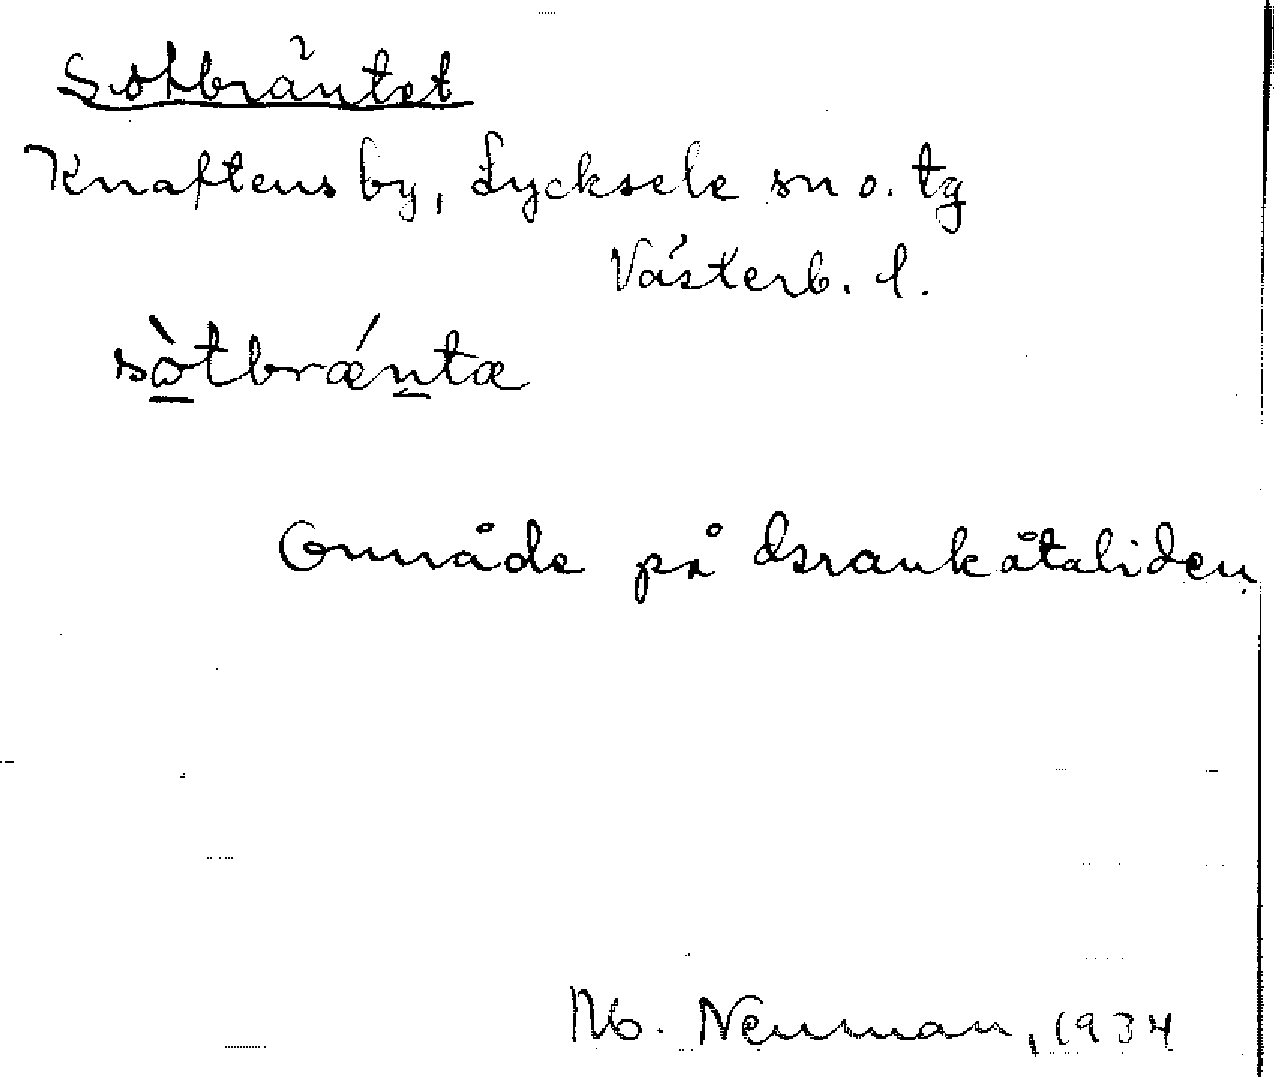 Sotbräntet
Knaftens by, Lycksele sn o. tg
Västerb. l.
sòtbrǽntæ
Område på
M. Neuman, 1934